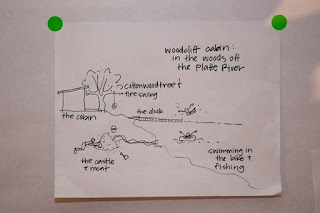 woodcliff cabin:
in the woods off
the Platte River
cottonwood tree &
tire swing
the cabin
the dock
the castle
& moat
swimming in
the lake &
fishing